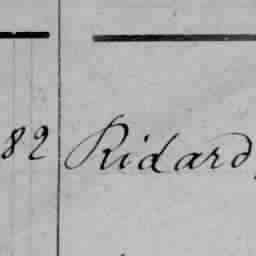 82 Ridard,